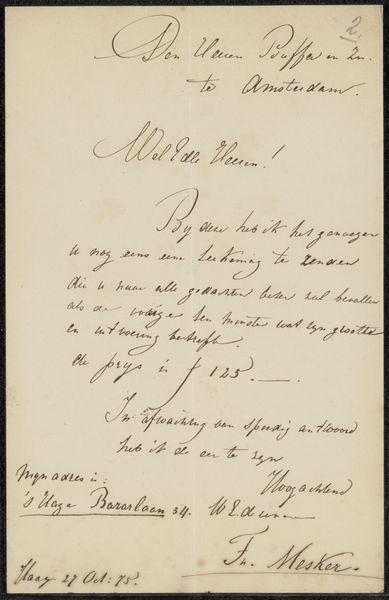 2.
Den Heeren Buffa en Zn.
te Amsterdam.
Wel Edle Heeren!
By deze heb ik het genoegen
u nog eens eene teekening te zenden
die u naar alle gedachten beter zal bevallen
als de vorige ten minste wat zyn grootte
en uitvoering betreft.
de prys is ƒ 125.—.
In afwachting van spoedig antwoord
heb ik de eer te zyn
Hoogachtend
Mijn adres is:
's Hage Bazarlaan 34.
WEd
Mesker
Haag 27 Oct: 75.